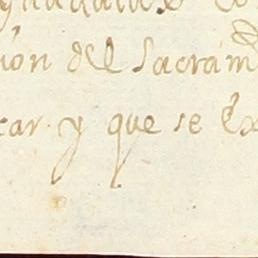 ion del Sacram
car y que se Ex